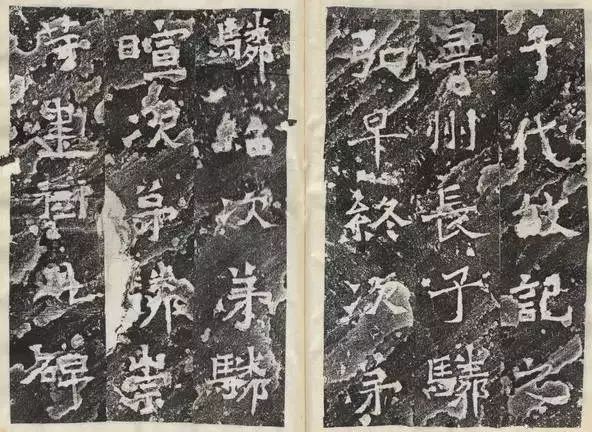 千代故記之
尋州長子驎
弘早終次弟
驎紹次弟驎
暄次弟驎崇
等建樹此碑